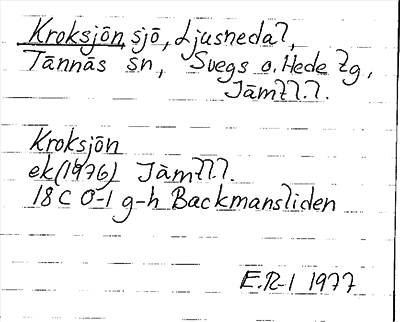 Kroksjön, sjö, Ljusnedal,
Tännäs sn, Svegs o. Hede tg,
Jämtl.l.
Kroksjön
ek (1976) Jämtl.l.
18 C 0-1 g-h Backmansliden
E.R-l 1977